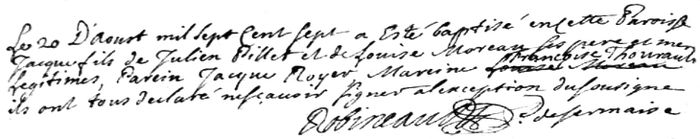 Le 20 D'aoust mil sept Cent sept a Esté baptisé en cette Paroisse
Jacque fils de Julien Pillet et de Louise Moreau ses pere et mere
Legitimes, Parein Jacque Royer Mareine Françoise Thourault
ils ont tous declaré ne sçavoir signer a lexception du sousigne
Robineault C. de sermaise